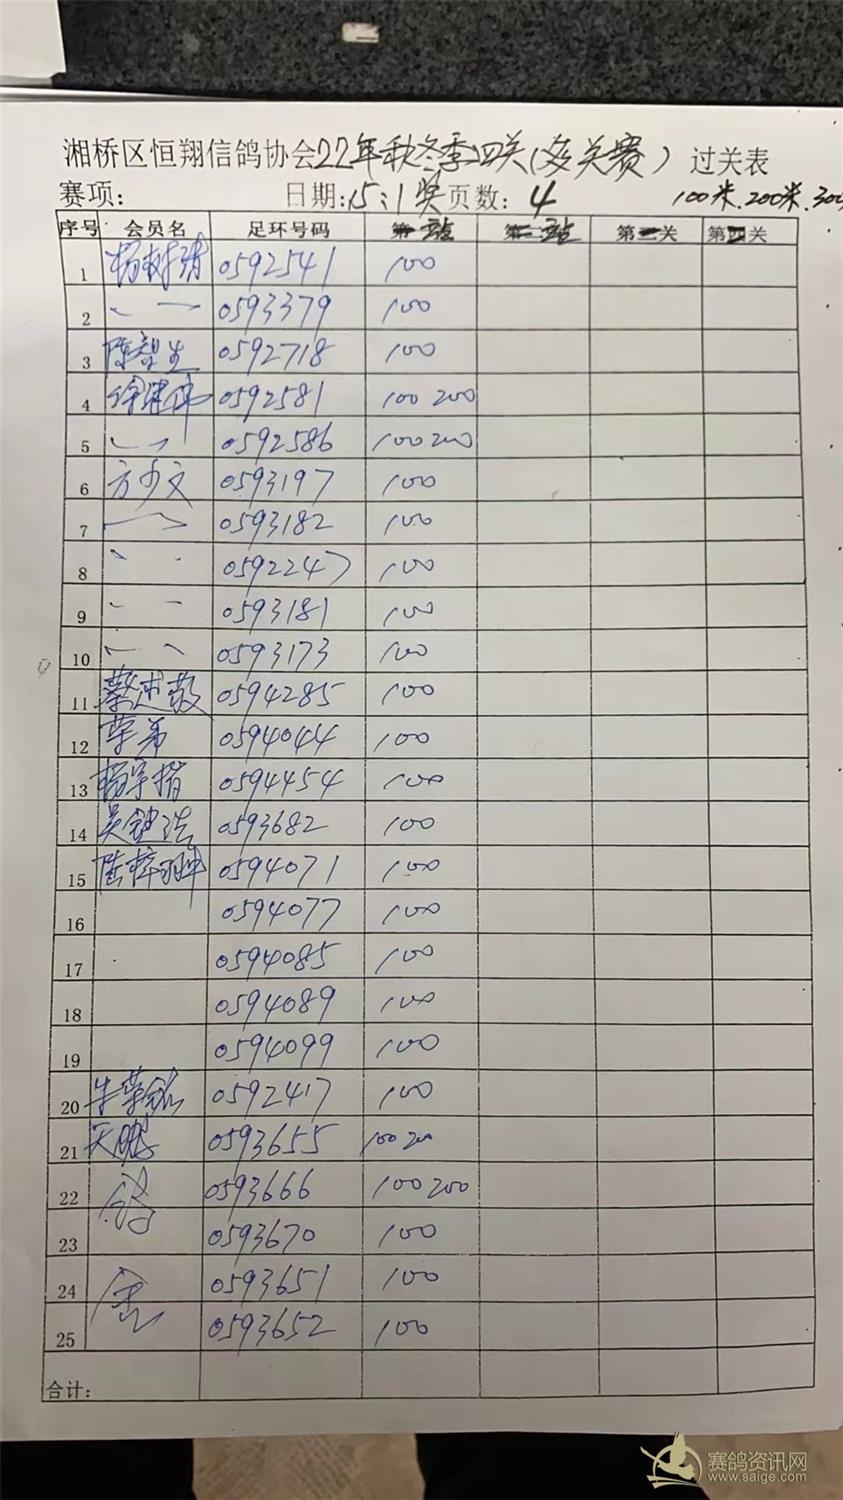 湘桥区恒翔信鸽协会22年秋冬季四关(多关赛) 过关表
赛项: 日期:15:1奖 页数: 4 100米.200米.300
序号 会员名 足环号码 第一站 第二站 第三关 第四关
1 杨树 0592541 100
2 0593379 100
3 陈智生 0592718 100
4 0592581 100 200
5 0592586 100 200
6 方少文 0593197 100
7 0593182 100
8 0592247 100
9 0593181 100
10 0593173 100
11 0594285 100
12 0594044 100
13 杨宇 0594454 100
14 吴 0593682 100
15 陈梓 0594071 100
16 0594077 100
17 0594085 100
18 0594089 100
19 0594099 100
20 0592417 100
21 天鹏 0593655 100 200
22 鸽 0593666 100 200
23 0593670 100
24 舍 0593651 100
25 0593652 100
合计:
赛鸽资讯网
www.saige.com